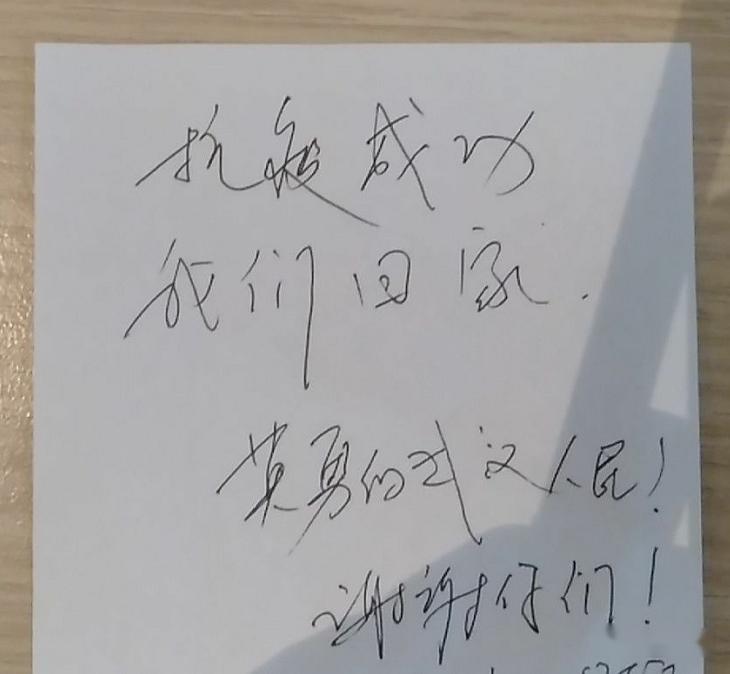 抗疫成功
我们回家.
英勇的武汉人民!
谢谢你们!